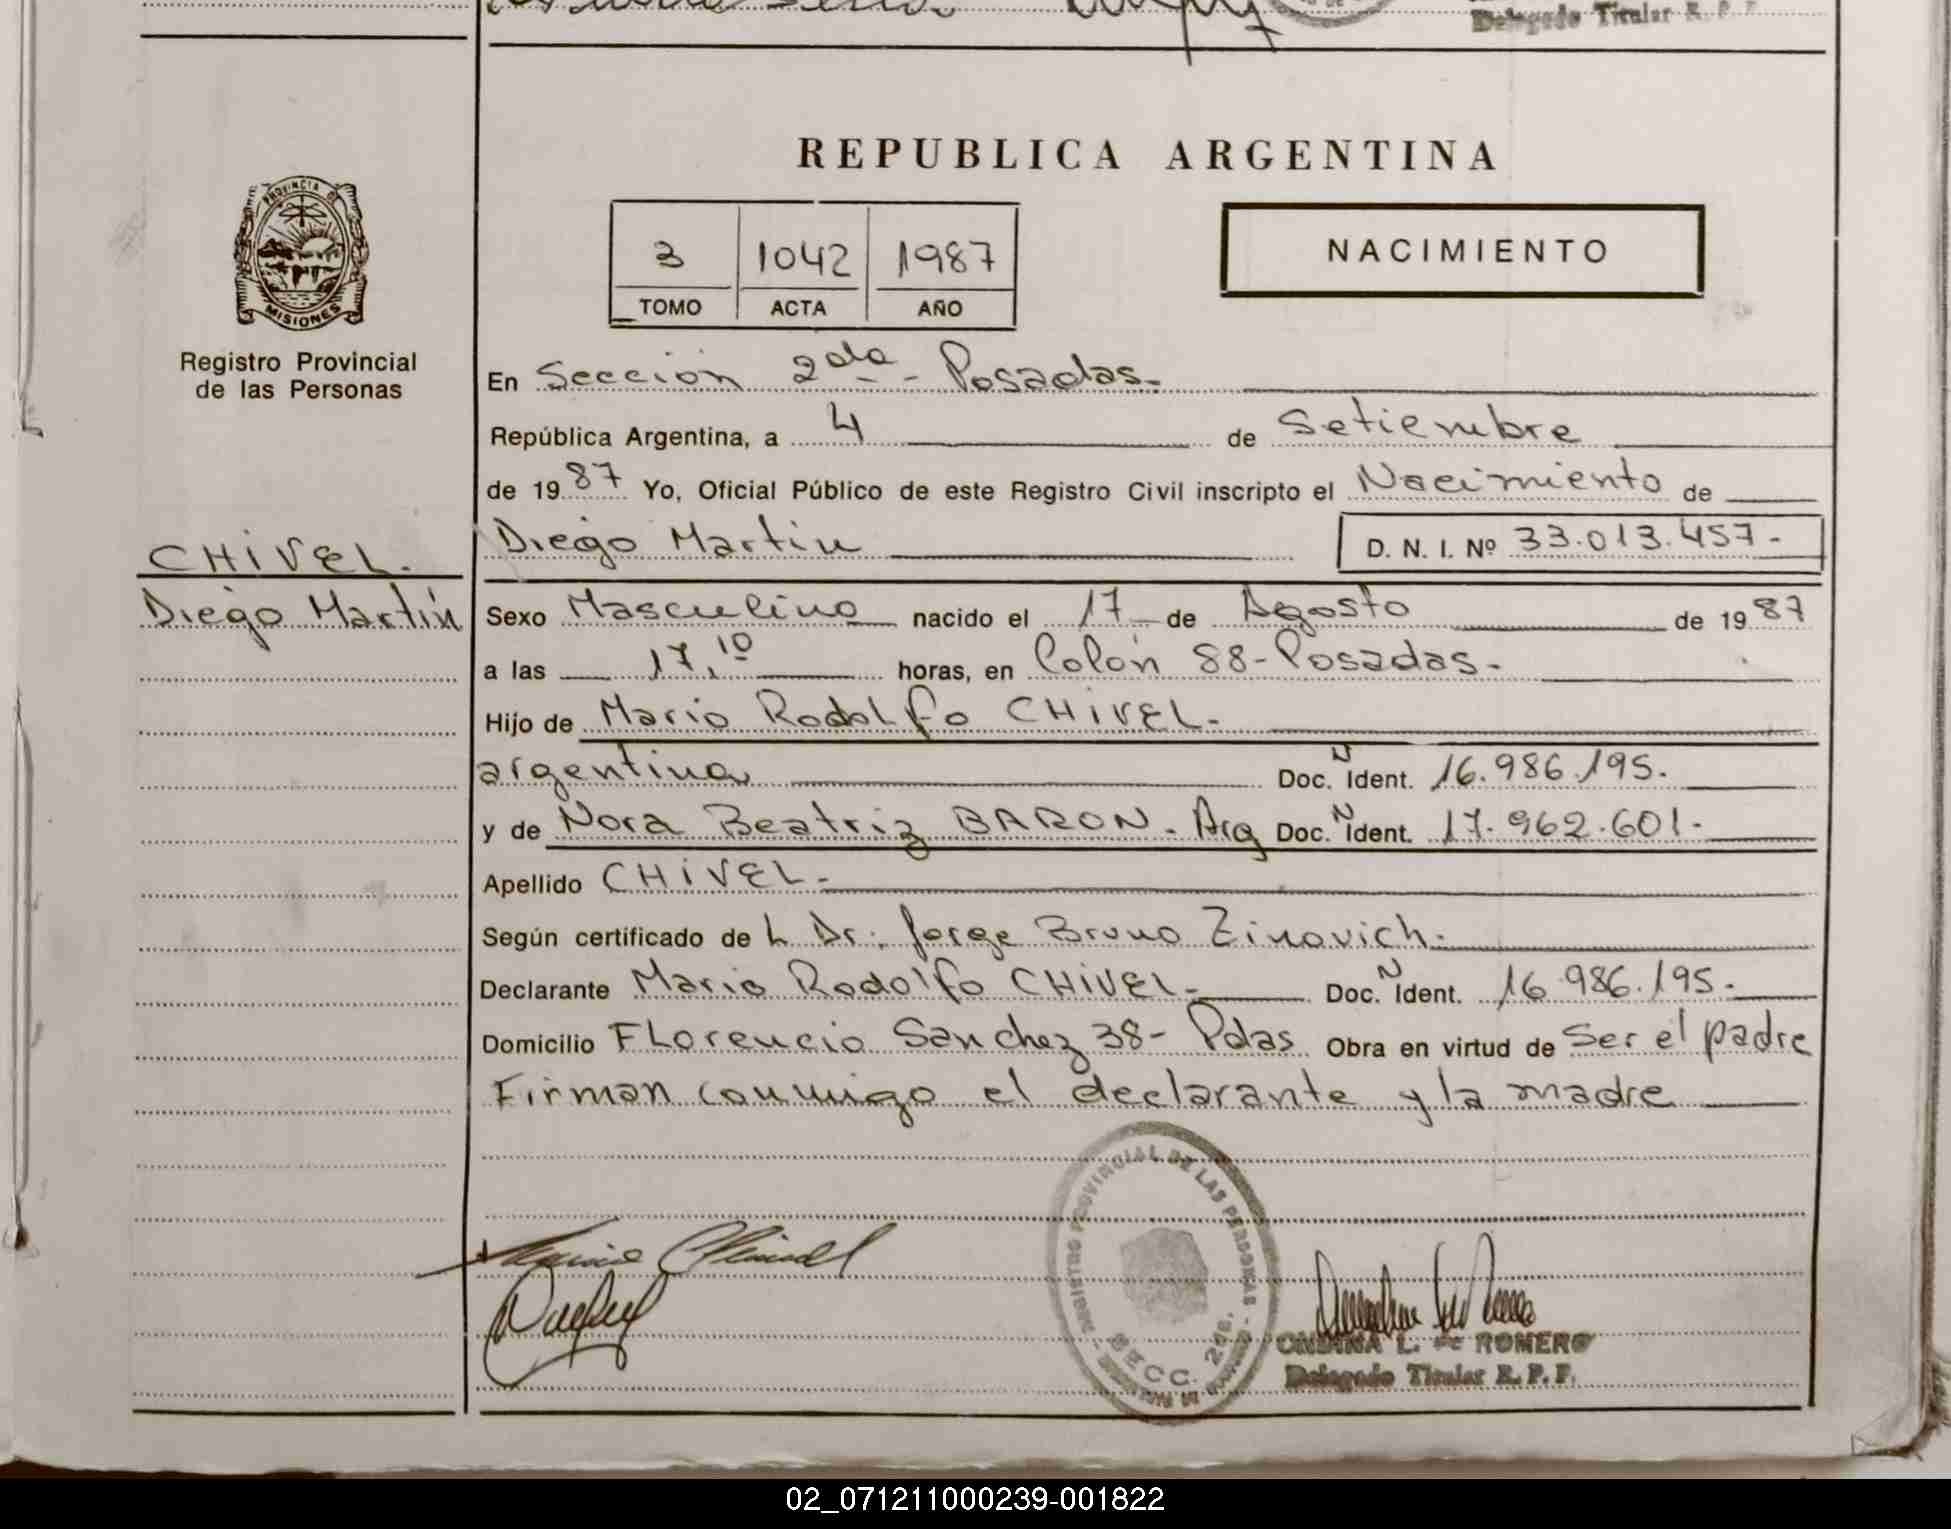 Delegado Titular R. P. F.
PROVINCIA DE
MISIONES
Registro Provincial
de las Personas
CHIVEL.
Diego Martín
REPUBLICA ARGENTINA
3 1042 1987
TOMO ACTA AÑO
NACIMIENTO
En Sección 2da - Posadas.
República Argentina, a 4 de Setiembre
de 1987 Yo, Oficial Público de este Registro Civil inscripto el Nacimiento de
Diego Martin D. N. I. Nº 33.013.457-
Sexo Masculino nacido el 17 de Agosto de 1987
a las 17,10 horas, en Colón 88-Posadas.
Hijo de Mario Rodolfo CHIVEL.
argentina Doc. N Ident. 16.986.195.
y de Nora Beatriz BARON. Arg Doc. N Ident. 17.962.601.
Apellido CHIVEL.
Según certificado de L Dr. Jorge Bruno Zinovich.
Declarante Mario Rodolfo CHIVEL. Doc. N Ident. 16.986.195.
Domicilio FLorencio Sanchez 38- Pdas Obra en virtud de Ser el padre
Firman conmigo el declarante y la madre
REGISTRO PROVINCIAL DE LAS PERSONAS
SECC. 2da.
ONDINA L. de ROMERO
Delegado Titular R. P. F.
02_071211000239-001822